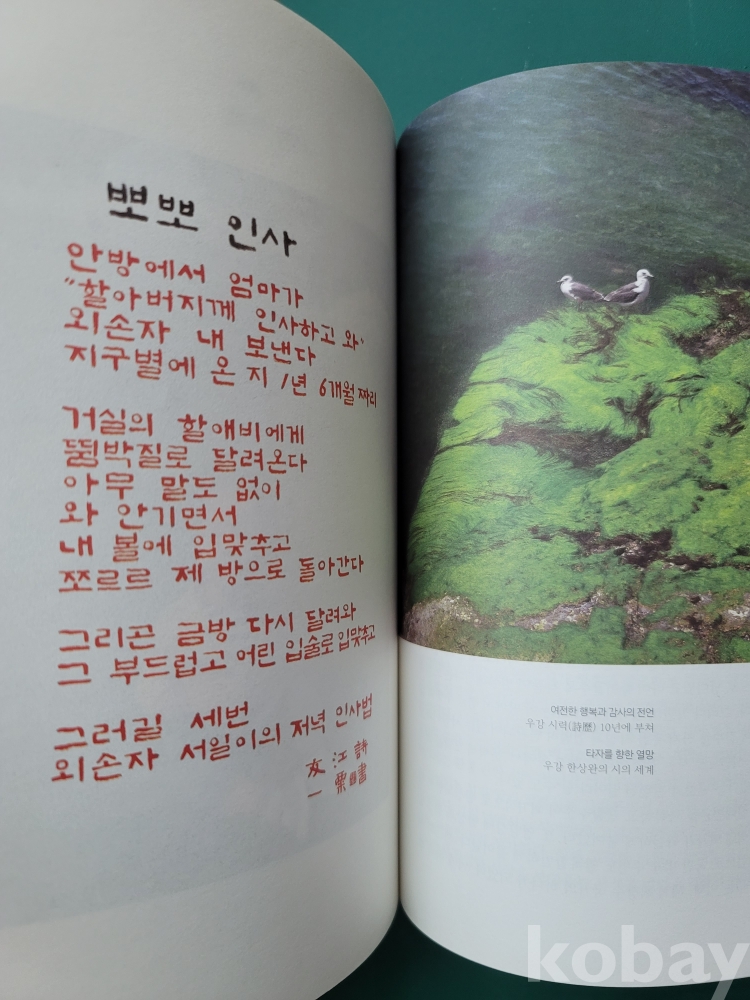 뽀뽀 인사
안방에서 엄마가
"할아버지께 인사하고 와"
외손자 내 보낸다
지구별에 온 지 1년 6개월 짜리
거실의 할애비에게
뜀박질로 달려온다
아무 말도 없이
와 안기면서
내 볼에 입맞추고
쪼르르 제 방으로 돌아간다
그리곤 금방 다시 달려와
그 부드럽고 어린 입술로 입맞추고
그러길 세번
외손자 서일이의 저녁 인사법
友江 詩
一粟 書
여전한 행복과 감사의 전언
우강 시력(詩歷) 10년에 부쳐
타자를 향한 열망
우강 한상완의 시의 세계
kobay